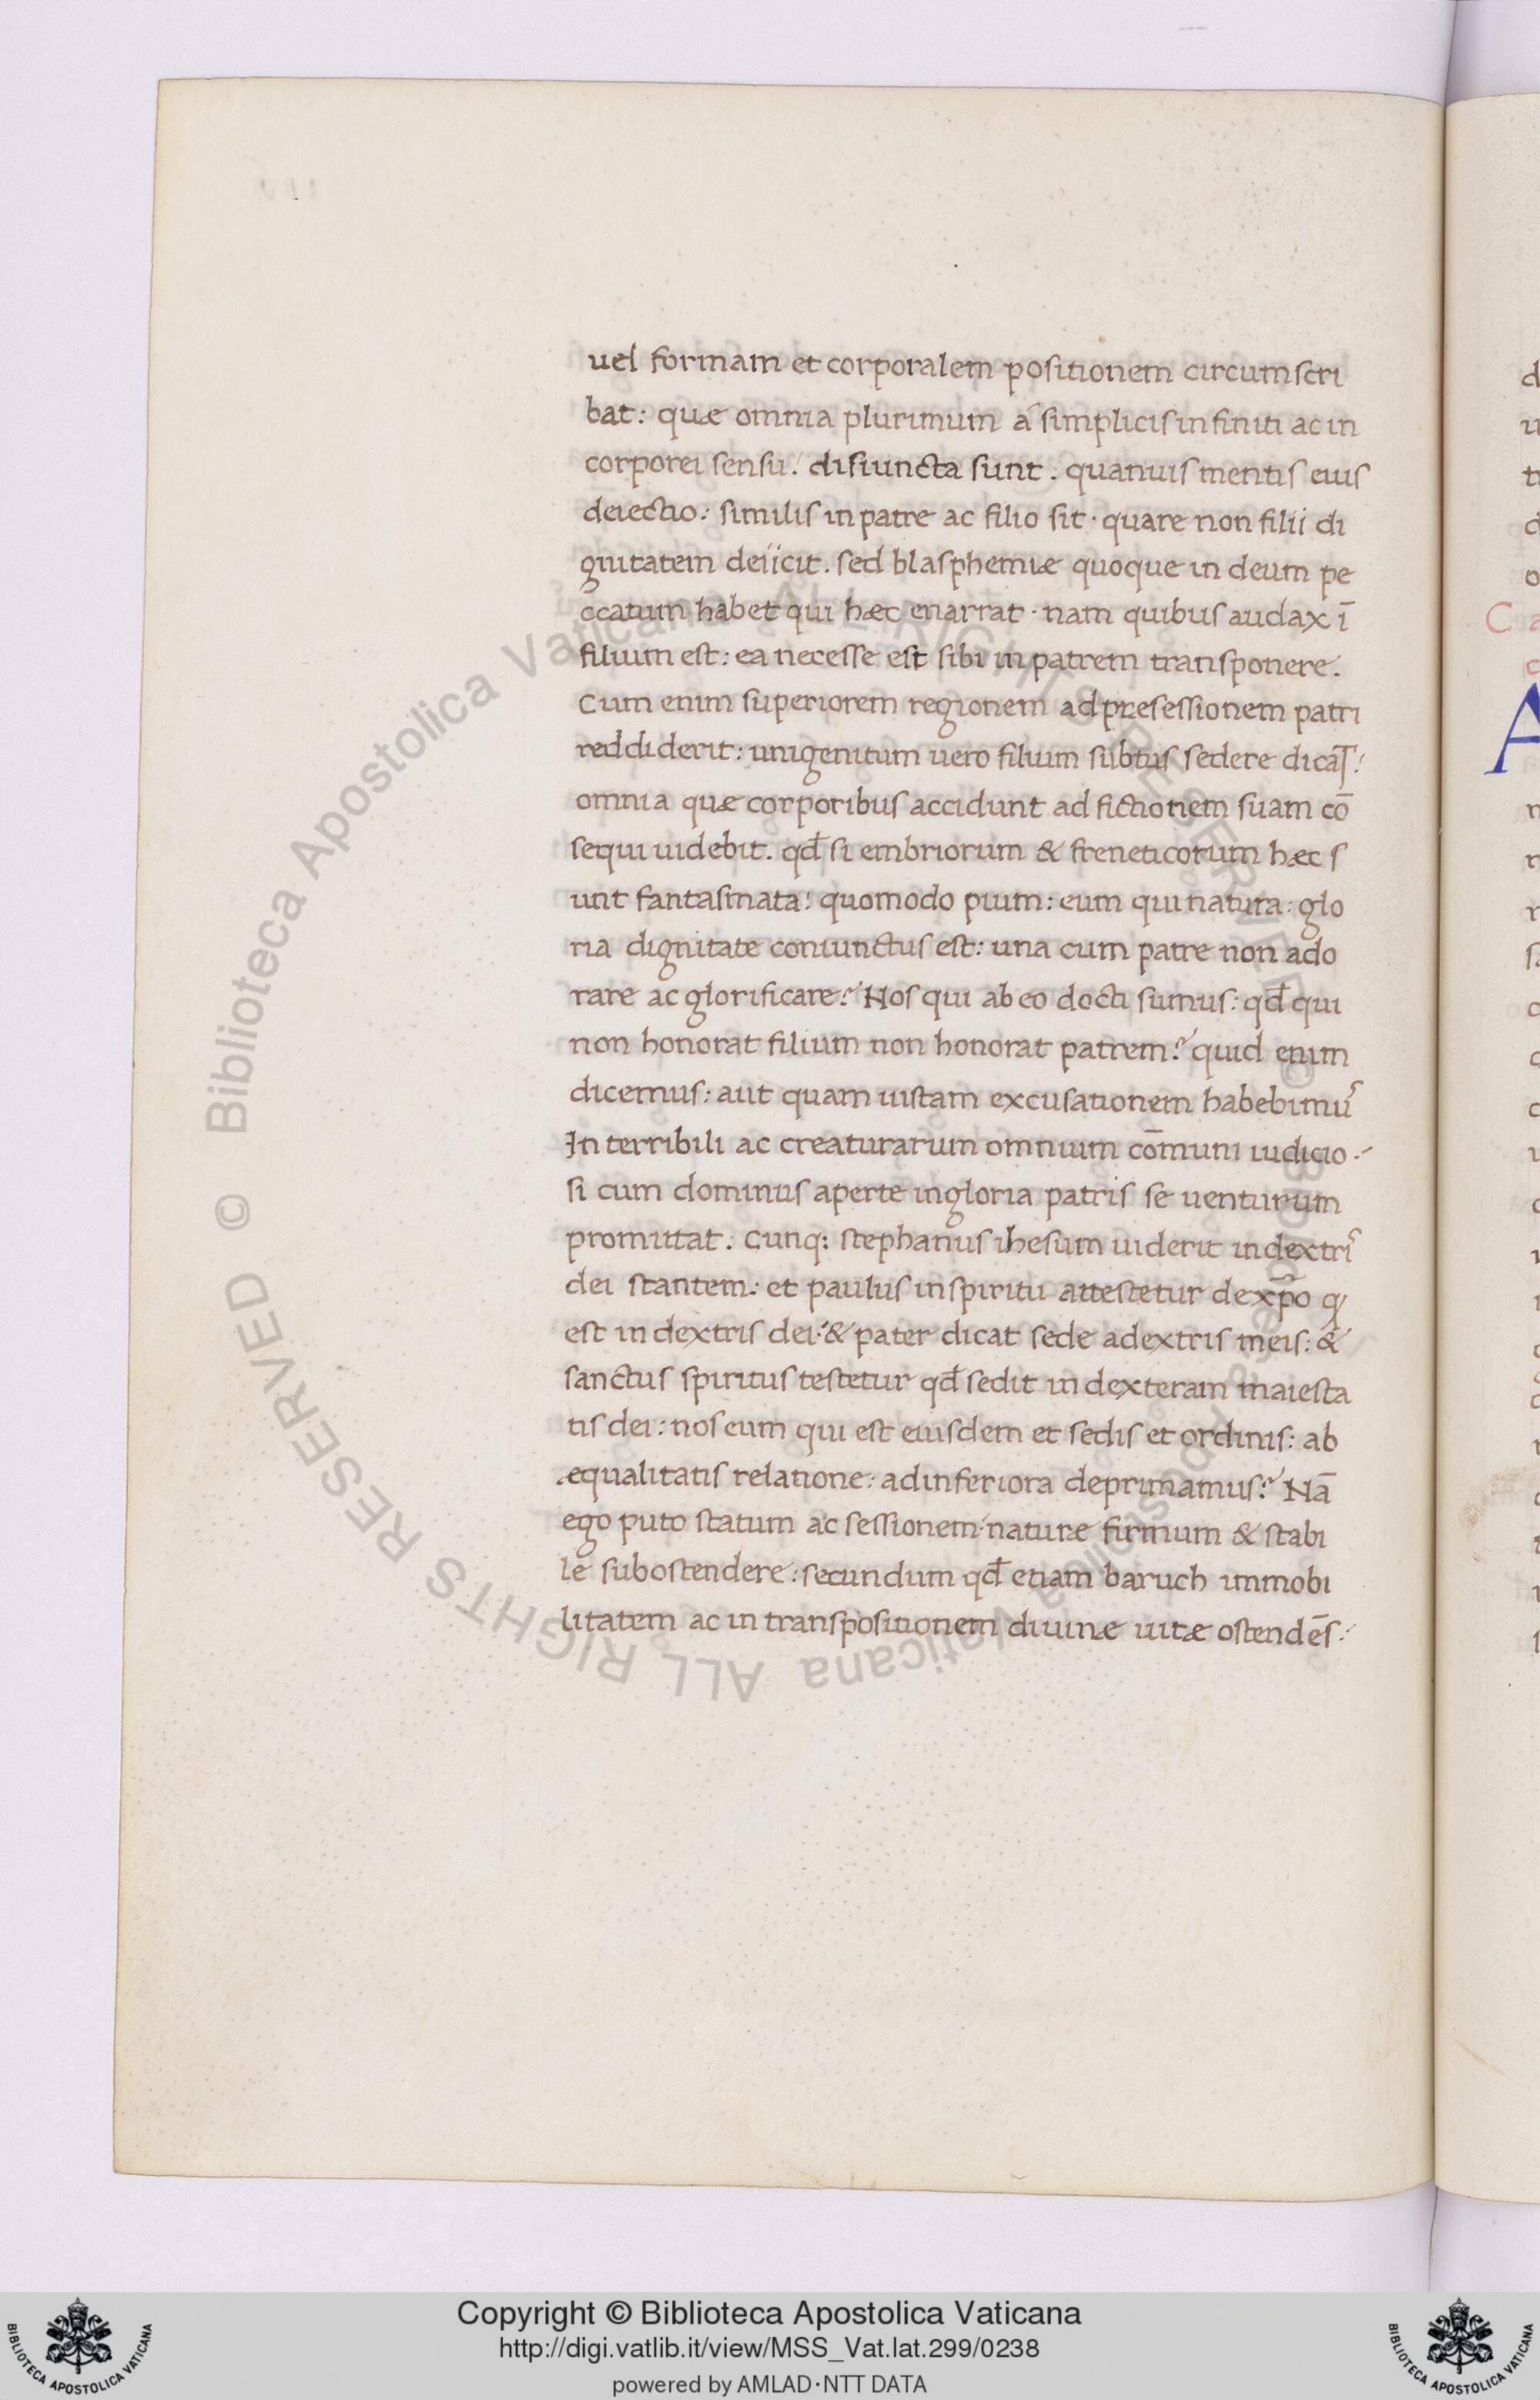 uel formam et corporalem positionem circumscri
bat: quæ omnia plurimum á simplicis infiniti ac in
corporei sensu. disiuncta sunt. quanuis mentis eius
deiectio: similis in patre ac filio sit. quare non filii di
gnitatem deiicit. sed blasphemiæ quoque in deum pe
ccatum habet qui hæc enarrat. nam quibus audax ī
filium est: ea necesse est sibi in patrem transponere.
Cum enim superiorem regionem ad præsessionem patri
reddiderit: unigenitum uero filium subtus sedere dicat:
omnia quæ corporibus accidunt ad fictionem suam cō
sequi uidebit. qđ si embriorum & freneticorum hæc s
unt fantasmata: quomodo pium: eum qui natura: glo
ria dignitate coniunctus est: una cum patre non ado
rare ac glorificare? Nos qui ab eo docti sumus: qđ qui
non honorat filium non honorat patrem? quid enim
dicemus: aut quam iustam excusationem habebimus
In terribili ac creaturarum omnium cōmuni iudicio.
si cum dominus aperte in gloria patris se uenturum
promittat. Cunq: stephanus ihesum uiderit in dextris
dei stantem: et paulus in spiritu attestetur de xp̄o q
est in dextris dei: & pater dicat sede a dextris meis: &
sanctus spiritus testetur qđ sedit in dexteram maiesta
tis dei: nos eum qui est eiusdem et sedis et ordinis: ab
æqualitatis relatione: ad inferiora deprimamus? Nā
ego puto statum ac sessionem naturæ firmum & stabi
le subostendere: secundum qđ etiam baruch immobi
litatem ac in transpositionem diuinæ uitæ ostendēs:
Copyright © Biblioteca Apostolica Vaticana
http://digi.vatlib.it/view/MSS_Vat.lat.299/0238
powered by AMLAD·NTT DATA